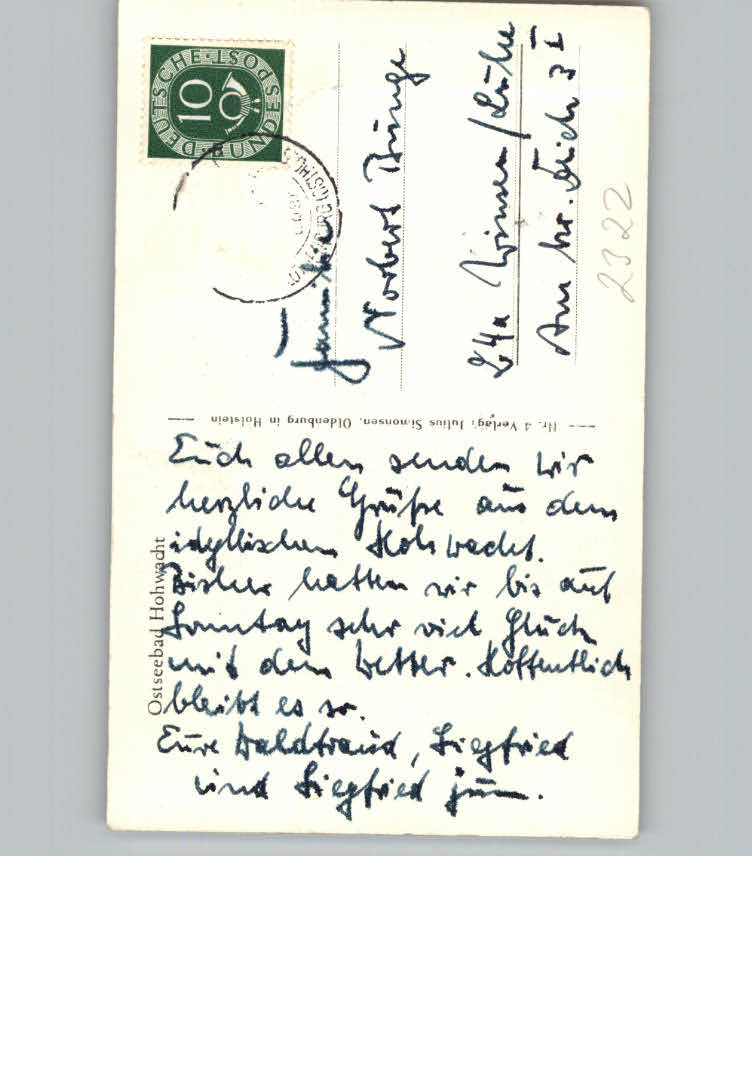 DEUTSCHE BUNDESPOST
10
Familie
Norbert Bunge
24a Winsen/Luhe
Am
2322
Nr. 4 Verlag: Julius Simonsen, Oldenburg in Holstein
Ostseebad Hohwacht
Euch allen senden wir
herzliche Grüße aus dem
idyllischen Hohwacht.
Bisher hatten wir bis auf
Sonntag sehr viel Glück
mit dem Wetter. Hoffentlich
bleibt es so.
Eure Waldtraud, Siegfried
und Siegfried jun.